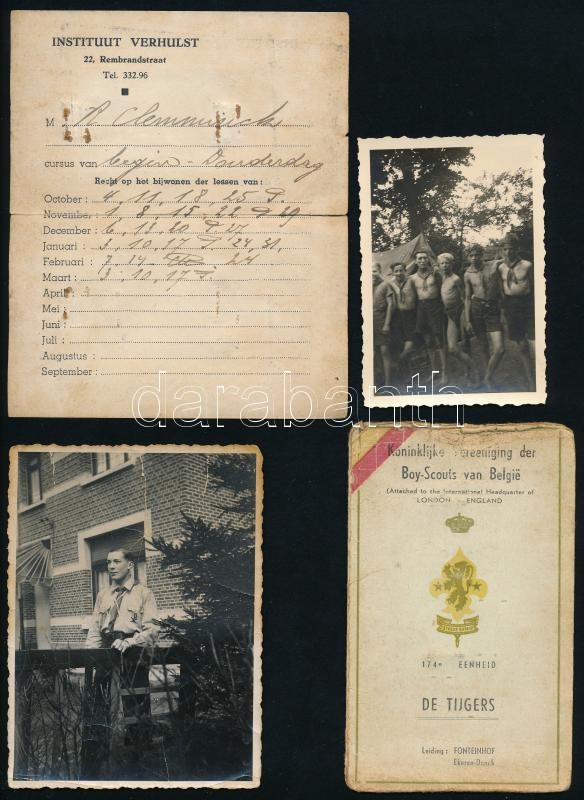 INSTITUUT VERHULST
22, Rembrandtstraat
Tel. 332.96
M
cursus van begin - Donderdag
Recht op het bijwonen der lessen van :
October : 4, 11, 18 25 P.
November : 1, 8, 15, 22 P 29
December : 6, 13 20 P 27
Januari : 3, 10, 17 P 24, 31,
Februari : 7, 14 24
Maart : 3, 10, 17 P.
April :
Mei :
Juni :
Juli :
Augustus :
September :
darabanth
Koninklijke Vereeniging der
Boy-Scouts van België
(Attached to the International Headquarter of
LONDON - ENGLAND
174e EENHEID
DE TIJGERS
Leiding : FONTEINHOF
Ekeren-Donck